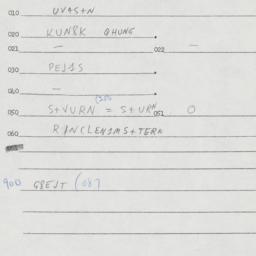 010 UV4S+N
020 KUN8K QHUNG .
021 — 022 —
030 PEJ1S .
040 — .
050 S+VURN = S+URN 051 0
060 R/NCLEN1MS+TERK
900 G8EJT (087